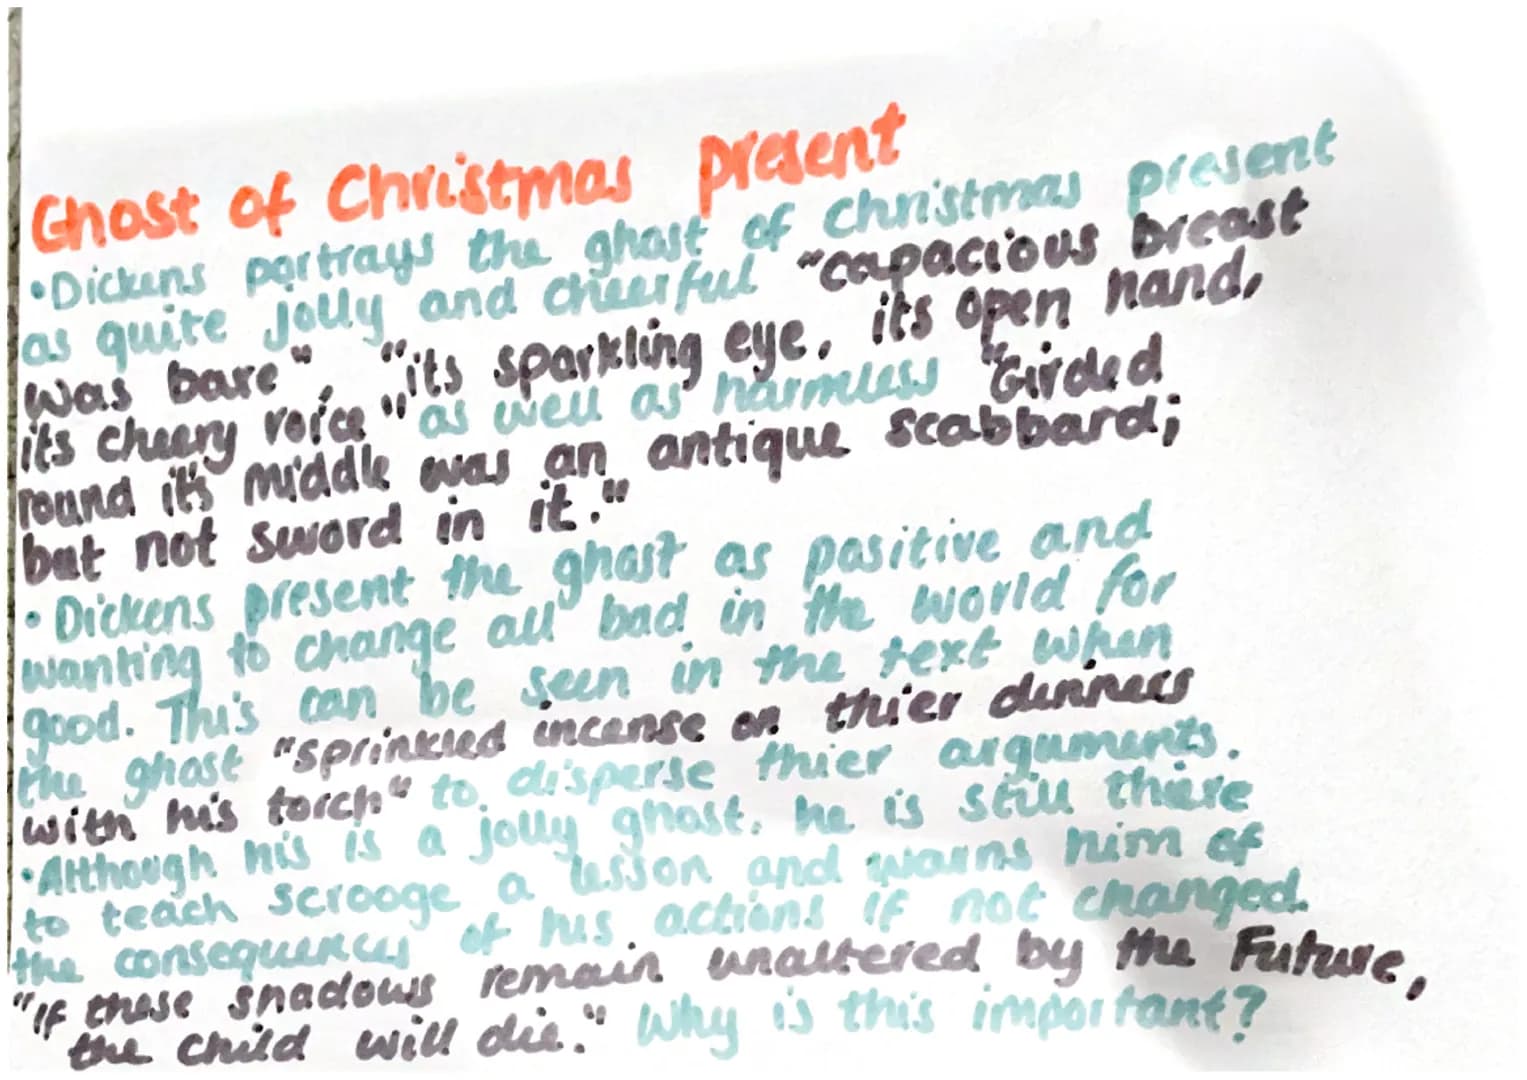 Ghost of Christmas present
•Dickens portrays the ghost of christmas present
as quite jolly and cheerful "capacious breast
was bare", "its sparkling eye, its open hand,
its cheery voice" as well as harmless "Girded
round its middle was an antique scabbard;
but not sword in it."
•Dickens present the ghost as positive and
wanting to change all bad in the world for
good. This can be seen in the text when
the ghost "sprinkled incense on thier dinners
with his torch" to disperse thier arguments.
•Although his is a jolly ghost, he is still there
to teach scrooge a lesson and warns him of
the consequences of his actions if not changed.
"If these shadows remain unaltered by the Future,
the child will die." Why is this important?